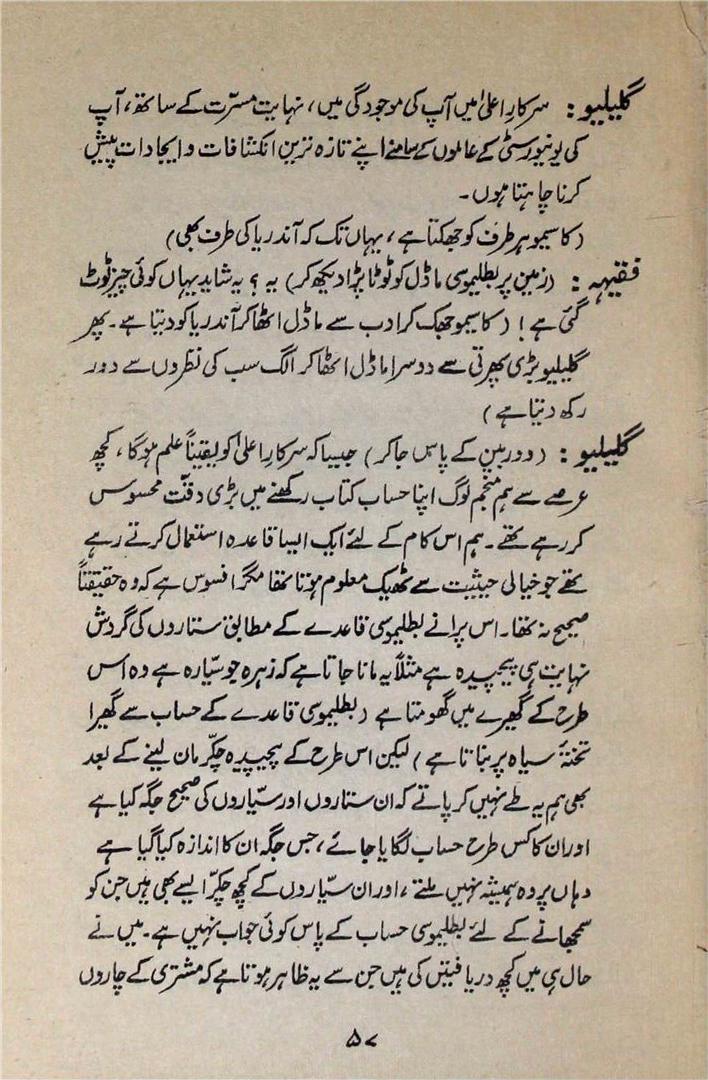 گلیلیو : سرکارِ اعلیٰ میں آپ کی موجودگی میں، نہایت مسرّت کے ساتھ، آپ
کی یونیورسٹی کے عالموں کے سامنے اپنے تازہ ترین انکشافات و ایجادات پیش
کرنا چاہتا ہوں۔
(کاسیمو ہر طرف کو جھکتا ہے، یہاں تک کہ آندریا کی طرف بھی)
فقیہہ : (زمین پر بطلیموسی ماڈل کو ٹوٹا پڑا دیکھ کر) یہ ؟ یہ شاید یہاں کوئی چیز ٹوٹ
گئی ہے ! (کاسیمو جھک کر ادب سے ماڈل اٹھا کر آندریا کو دیتا ہے۔ پھر
گلیلیو بڑی پھرتی سے دوسرا ماڈل اٹھا کر الگ سب کی نظروں سے دور
رکھ دیتا ہے)
گلیلیو : (دوربین کے پاس جا کر) جیسا کہ سرکارِ اعلیٰ کو یقیناً علم ہوگا، کچھ
عرصے سے ہم منجم لوگ اپنا حساب کتاب رکھنے میں بڑی دقّت محسوس
کر رہے تھے۔ ہم اس کام کے لئے ایک ایسا قاعدہ استعمال کرتے رہے
تھے جو خیالی حیثیت سے ٹھیک معلوم ہوتا تھا مگر افسوس ہے کہ وہ حقیقتاً
صحیح نہ تھا۔ اس پرانے بطلیموسی قاعدے کے مطابق ستاروں کی گردش
نہایت ہی پیچیدہ ہے مثلاً یہ مانا جاتا ہے کہ زہرہ جو سیّارہ ہے وہ اس
طرح کے گھیرے میں گھومتا ہے (بطلیموسی قاعدے کے حساب سے گھیرا
تختۂ سیاہ پر بناتا ہے) لیکن اس طرح کے پیچیدہ چکّر مان لینے کے بعد
بھی ہم یہ طے نہیں کر پاتے کہ ان ستاروں اور سیّاروں کی صحیح جگہ کیا ہے
اور ان کا کس طرح حساب لگایا جائے، جس جگہ ان کا اندازہ کیا گیا ہے
وہاں پر وہ ہمیشہ نہیں ملتے، اور ان سیّاروں کے کچھ چکّر ایسے بھی ہیں جن کو
سمجھانے کے لئے بطلیموسی حساب کے پاس کوئی جواب نہیں ہے۔ میں نے
حال ہی میں کچھ دریافتیں کی ہیں جن سے یہ ظاہر ہوتا ہے کہ مشتری کے چاروں
۵۷